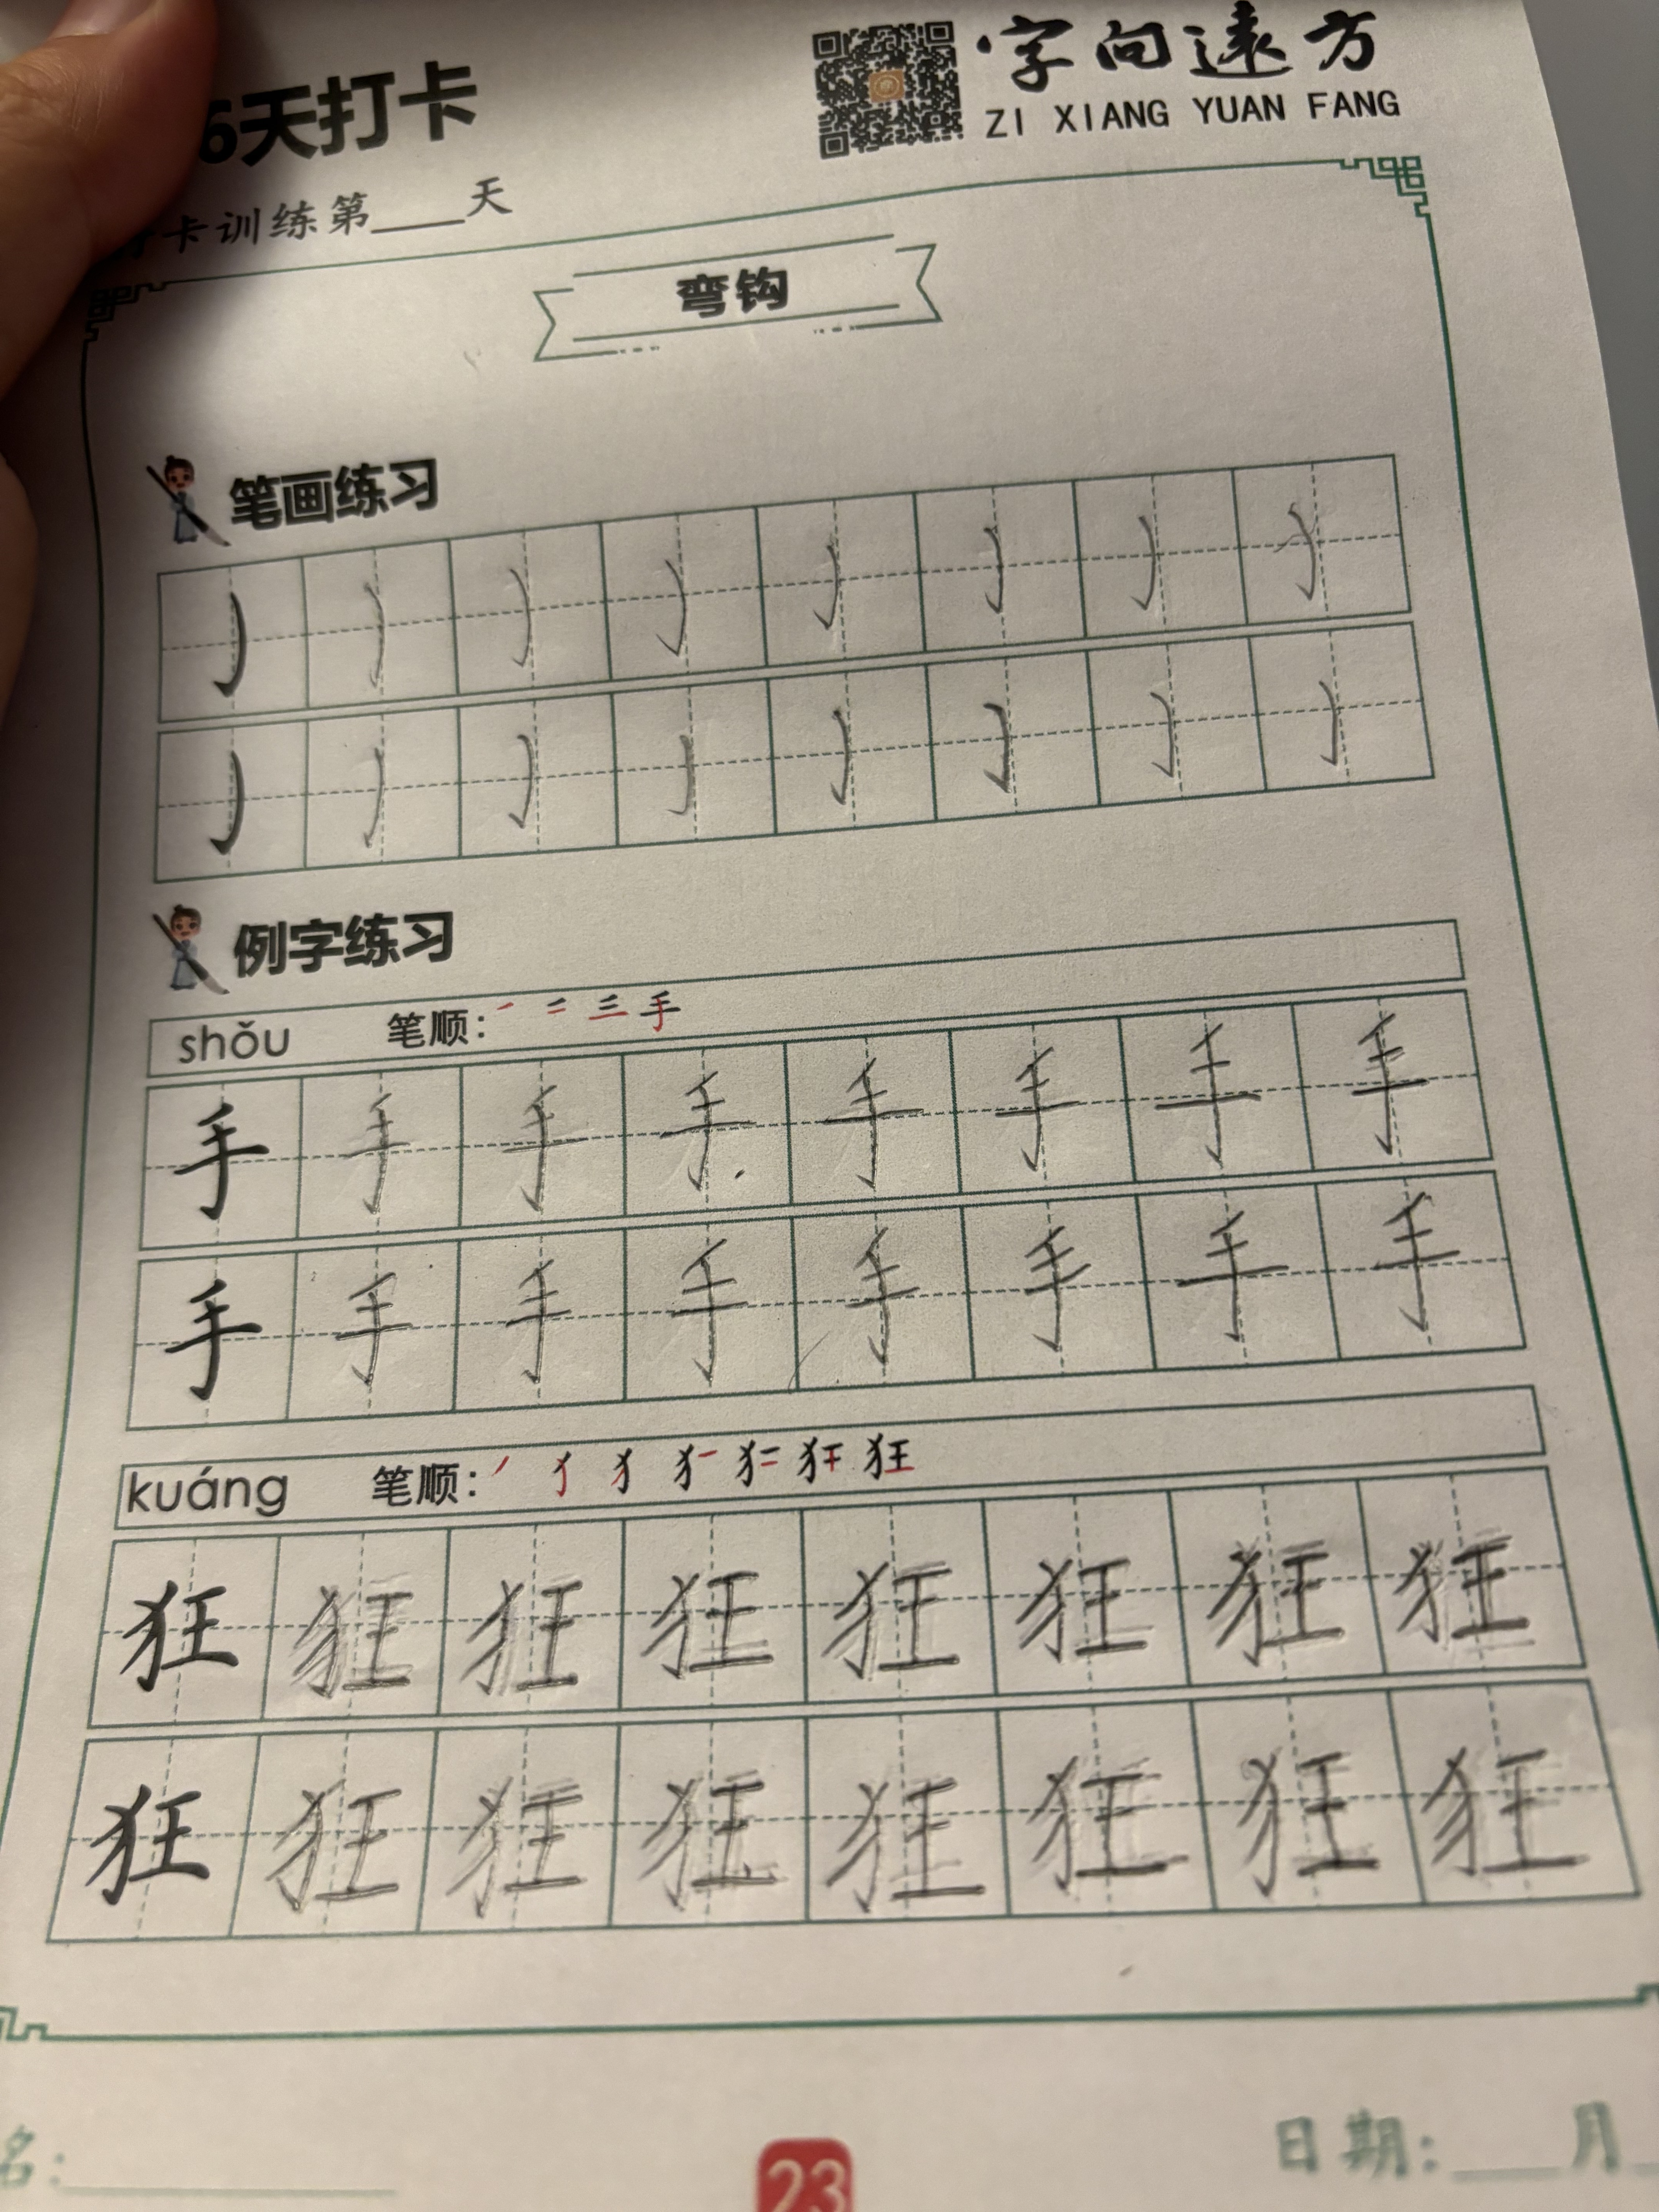 字向遠方
ZI XIANG YUAN FANG
6天打卡
卡训练第____天
弯钩
笔画练习
例字练习
shǒu 笔顺: 手
手手手手手手手手
手手手手手手手手
kuáng 笔顺: 狂
狂狂狂狂狂狂狂狂
狂狂狂狂狂狂狂狂
名:________ 日期:____月
23